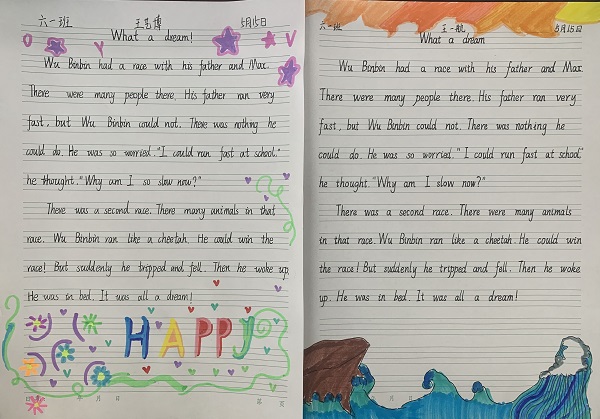 六一班 王艺博 5月15日
What a dream!
Wu Binbin had a race with his father and Max.
There were many people there. His father ran very
fast, but Wu Binbin could not. There was nothing he
could do. He was so worried. "I could run fast at school."
he thought. "Why am I so slow now?"
There was a second race. There many animals in that
race. Wu Binbin ran like a cheetah. He could win the
race! But suddenly he tripped and fell. Then he woke up.
He was in bed. It was all a dream!
HAPPY
年 月 日
第 页
六一班 王一航 5月15日
What a dream
Wu Binbin had a race with his father and Max
There were many people there. His father ran very
fast, but Wu Binbin could not. There was nothing he
could do. He was so worried. "I could run fast at school"
he thought. "Why am I slow now?"
There was a second race. There were many animals
in that race. Wu Binbin ran like a cheetah. He could win
the race! But suddenly he tripped and fell. Then he woke
up. He was in bed. It was all a dream!
月 日